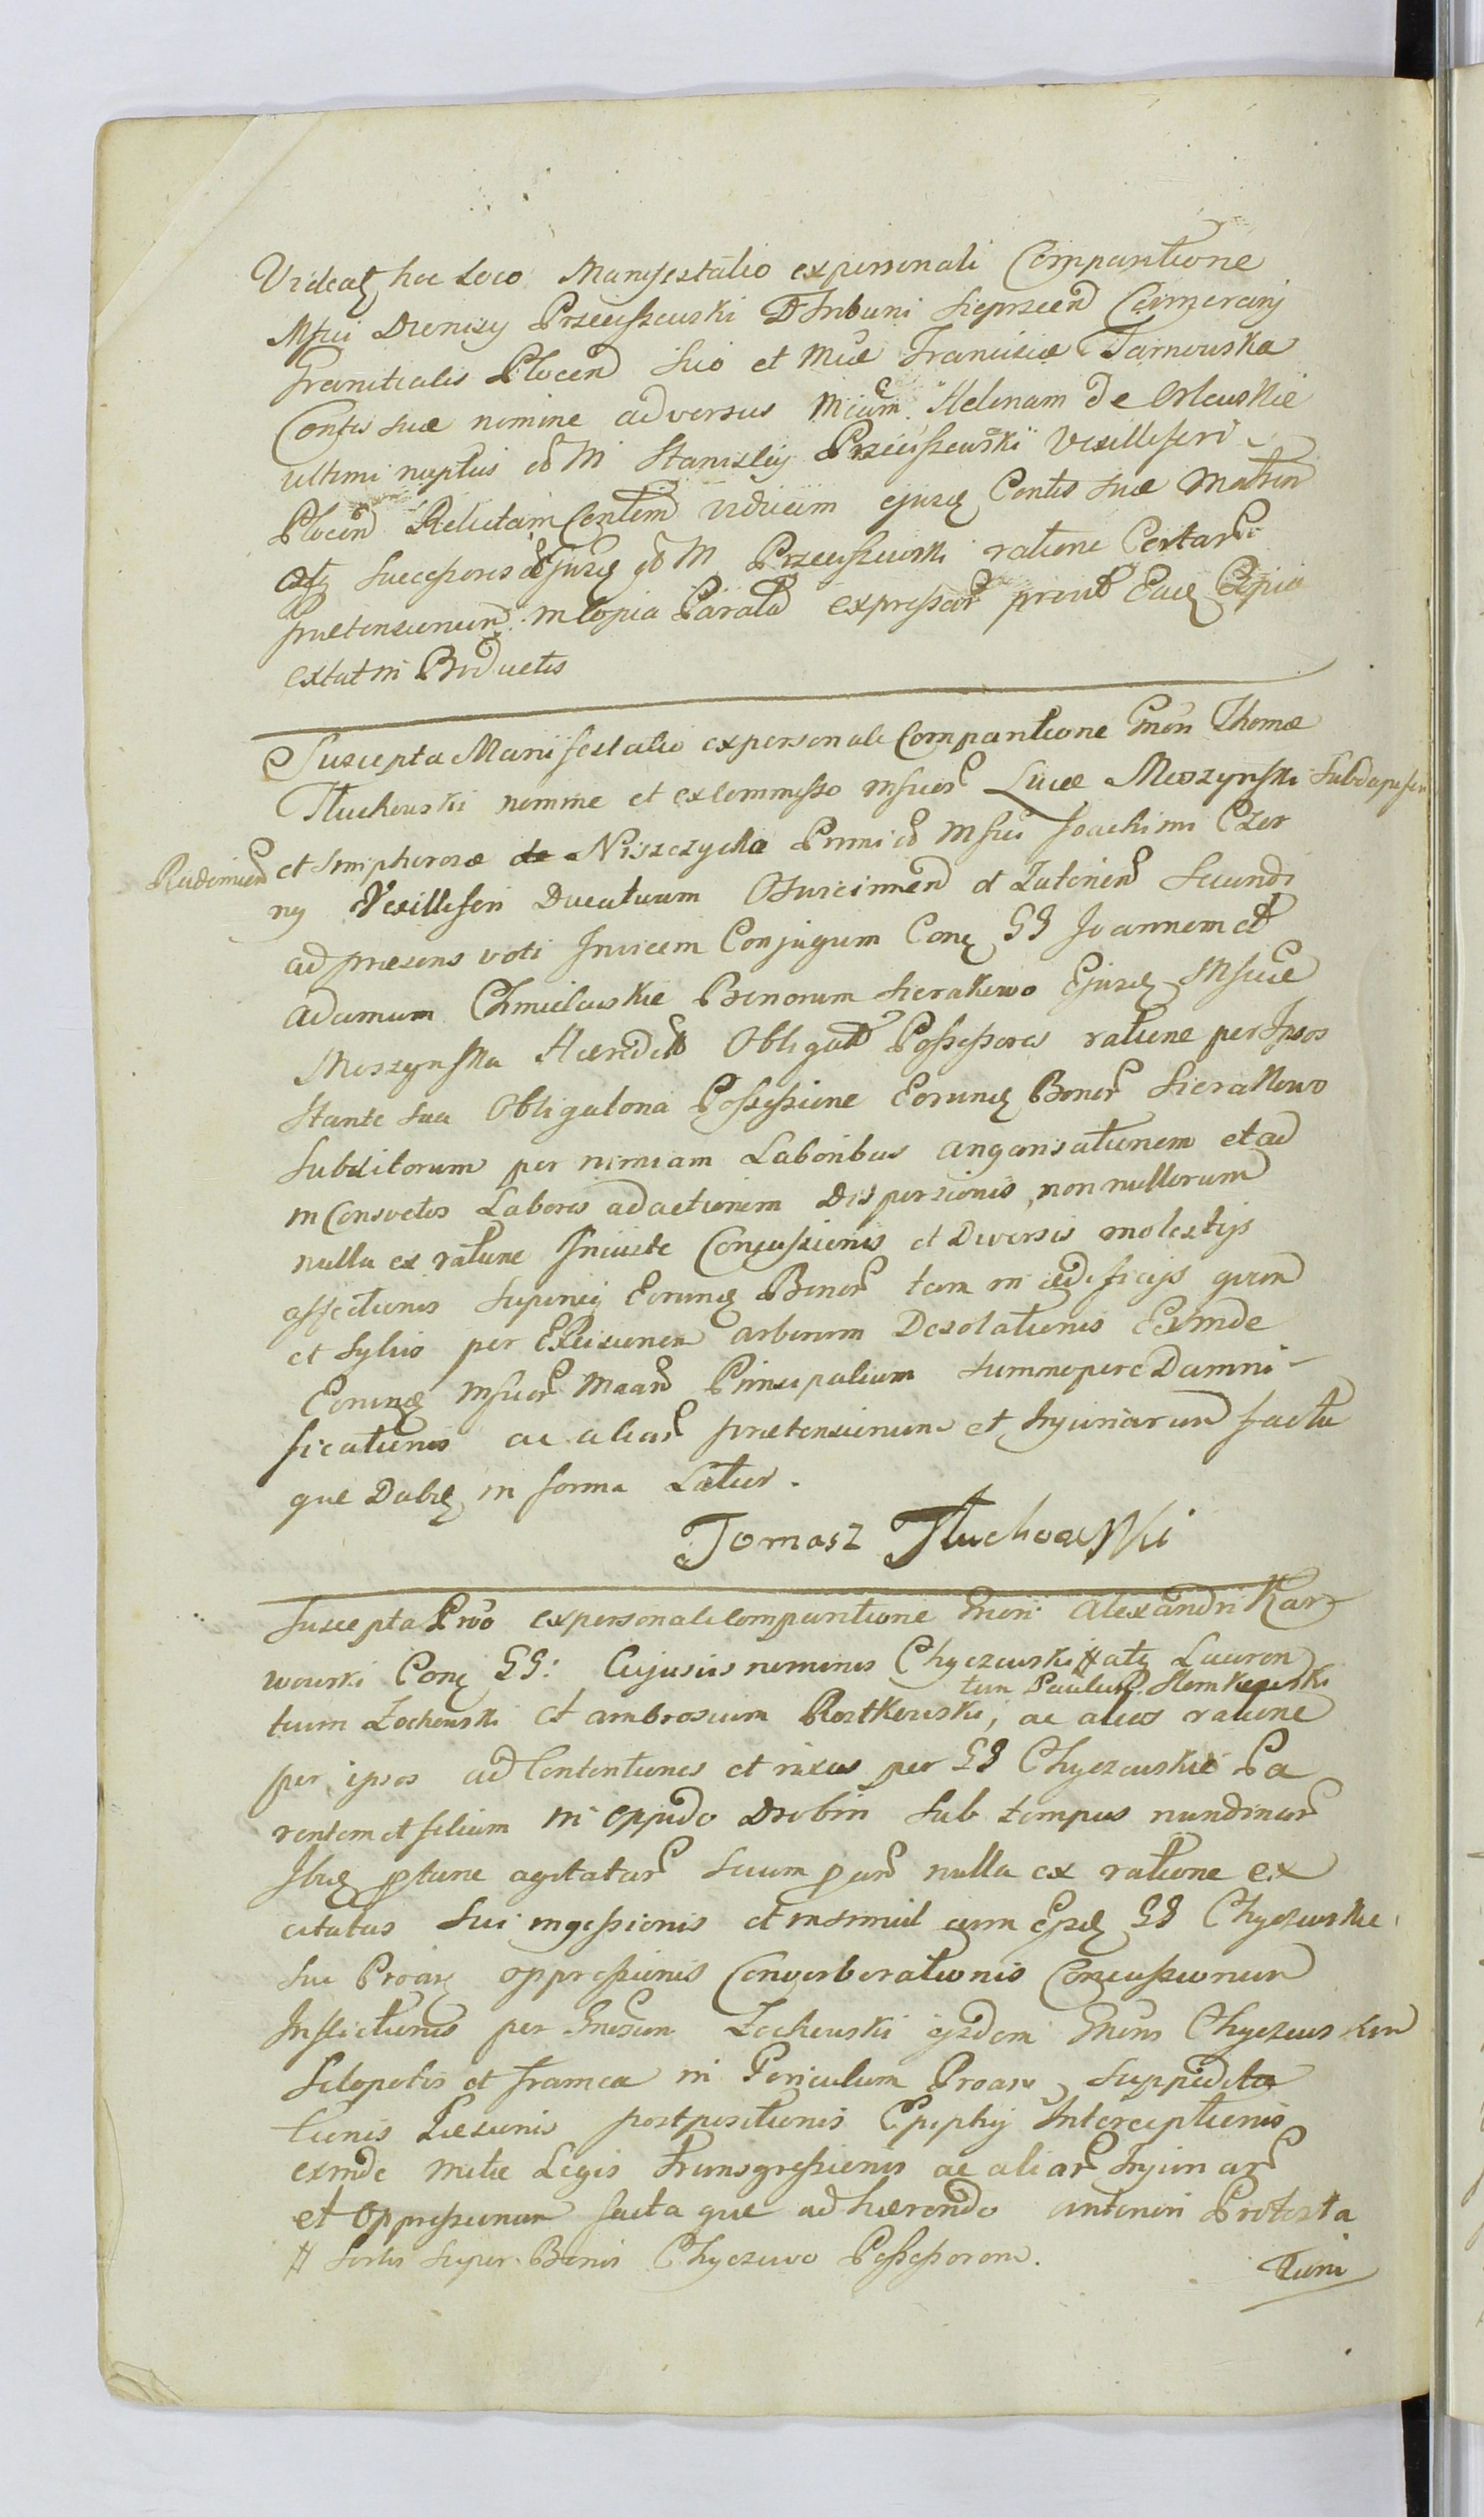 Videatq hoc Loco Manifestatio ex personali Compartione
Msfici Dionisy Przeciszewski D Tribuni Sieprscen Camerarij
Granitialis Plocen Suo et Mcae Franciscae Tarnowska
Contis suae nomine adversus Mcam Helenam de Orlewskie
ultimi nuptus od M Stanislaij Przeciszewski Vexilliferi
Plocen Relictam Contem viduam ejusq Contis suae Matrem
atq Successores ejusq od M Przeciszewski ratione Certarum
praetensionum in Copia Parata expressar prout Eaeq Copia
extat in Productis
Suscepta Manifestatio ex personali Compartione Gnon Thomae
Tluchowski nomine et ex Commisso Msficor Lucae Moszynski Subdapiferi
Radimien et Simphorosae de Niszczyckie Primi od Msfici Joachimi Czer
ny Vexilliferi Ducatuum Osviecimen et Zatorien Secundi
ad praesens voti Invicem Conjugum Conq GG Joannem et
Adamum Chmielewskie Bonorum Sierakowo Ejusq Msficae
Moszynska Haeredit Obligat Possessores ratione per Ipsos
Stante sua Obligatoria Possessione Eorumq Bonor Sierakowo
Subditorum per nimiam Laboribus angarisationem et ad
in Consvetos Labores adactionem Dispersionis non nullorum
nulla ex ratione Iniuste Concussionis et Diversis molestijs
affectionis Superiq Eorumq Bonor tam in aedificijs quam
et Sylvis per Excisionem arborum Desolationis Exinde
Eorumq Msficor Maan Principalium summopere Damni-
ficationis ac aliar praetensionum et Injuriarum facta
que Dabiq in forma Latior.
Tomasz Tłuchowski
Suscepta Prõo ex personali Compartione Gnon Alexandri Kar
wowski Conq GG: Cujusvis nominis Chyczewski # atq Lauren
tium Paulum Slomkowski
tium Zochowski et Ambrosium Rostkowski, ac alios ratione
per ipsos ad Contentiones et rixas per GG Chyczewskie Pa
rentem et filium in oppido Drobin sub tempus nundinar
Ibiq ptunc agitatar Suum par nulla ex ratione ex
citatas sui ingessionis et insimul cum Eisq GG Chyczewskie
sui Proarq oppressionis Converberationis Concussionum
Inflictionis per Gnosum Zochowski ijsdem Gnon Chyczewskim
Sclopetis et framea in Periculum Proar Suppedita
tionis Laesionis postpositionis Ephipij Interceptionis
exinde mitae Legis transgressionis ac aliar Injuriar
et Oppressionum facta que adhaerendo anteriori Protesta
# Sortis super Bonis Chyczewo Possessorem.
tioni